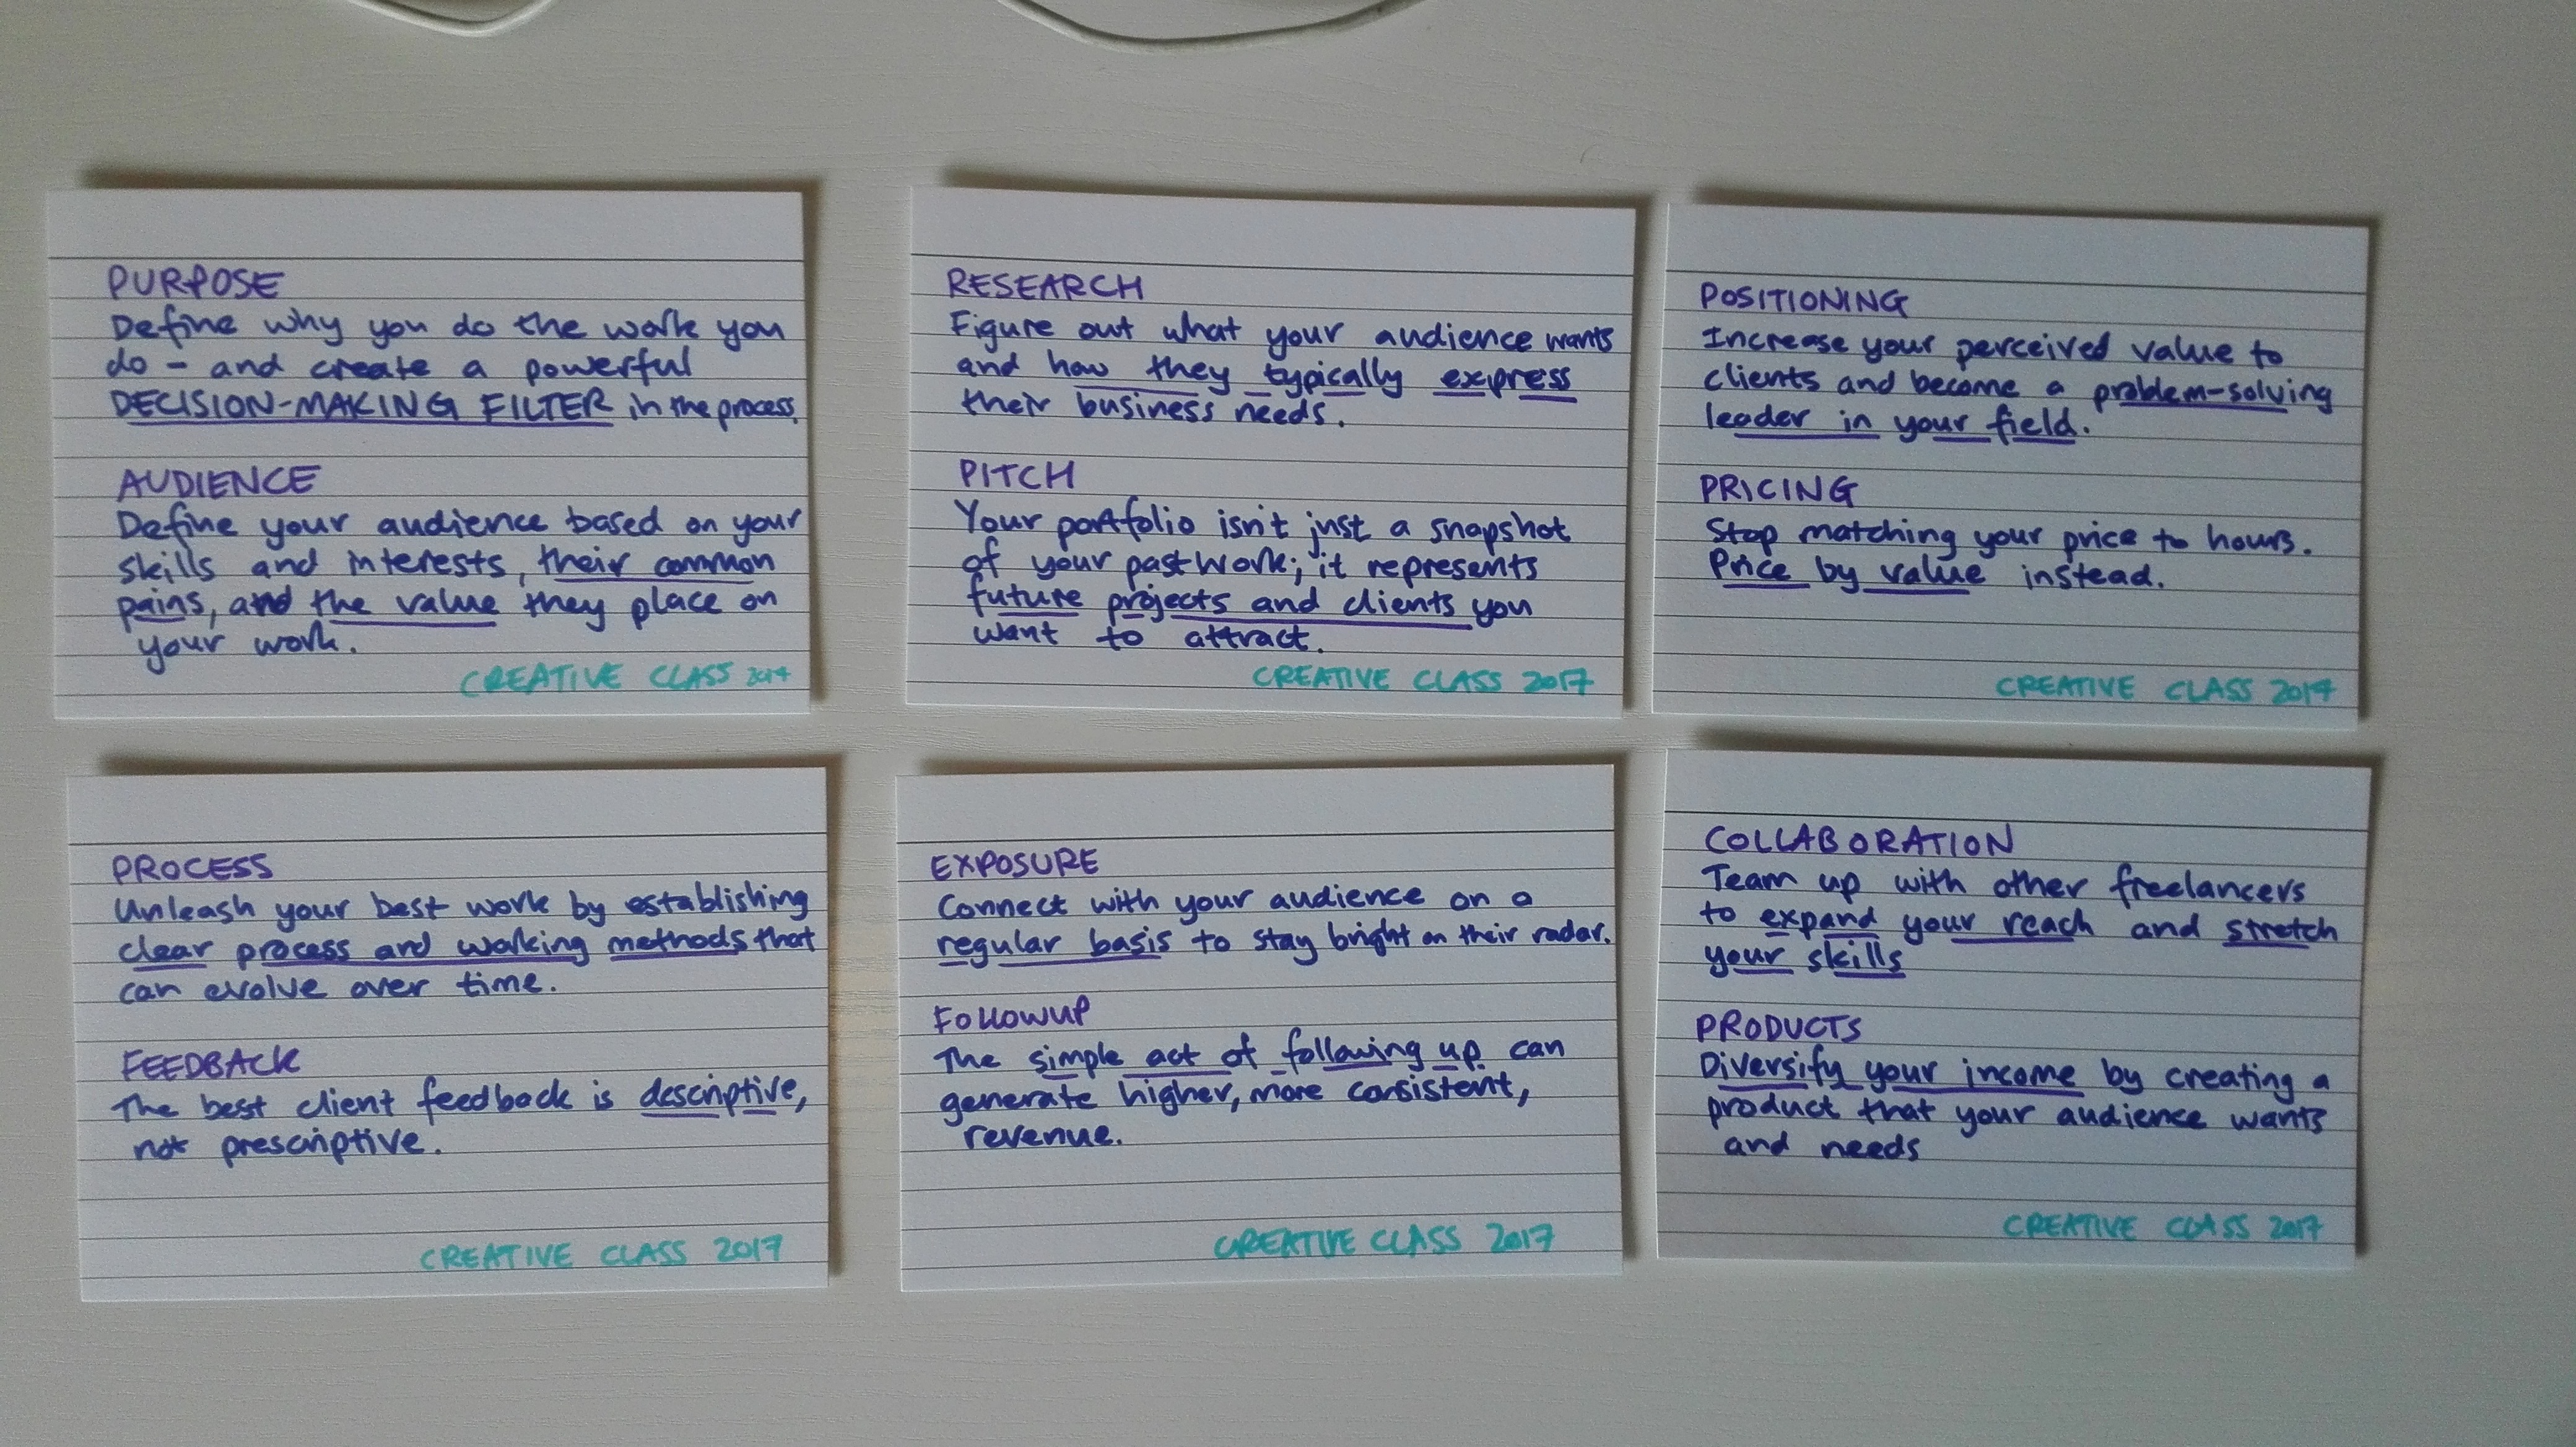 PURPOSE
Define why you do the work you
do - and create a powerful
DECISION-MAKING FILTER in the process.
AUDIENCE
Define your audience based on your
skills and interests, their common
pains, and the value they place on
your work.
CREATIVE CLASS 2017
RESEARCH
Figure out what your audience wants
and how they typically express
their business needs.
PITCH
Your portfolio isn't just a snapshot
of your past work; it represents
future projects and clients you
want to attract.
CREATIVE CLASS 2017
POSITIONING
Increase your perceived value to
clients and become a problem-solving
leader in your field.
PRICING
Stop matching your price to hours.
Price by value instead.
CREATIVE CLASS 2017
PROCESS
Unleash your best work by establishing
clear process and working methods that
can evolve over time.
FEEDBACK
The best client feedback is descriptive,
not prescriptive.
CREATIVE CLASS 2017
EXPOSURE
Connect with your audience on a
regular basis to stay bright on their radar.
FOLLOWUP
The simple act of following up can
generate higher, more consistent,
revenue.
CREATIVE CLASS 2017
COLLABORATION
Team up with other freelancers
to expand your reach and stretch
your skills
PRODUCTS
Diversify your income by creating a
product that your audience wants
and needs
CREATIVE CLASS 2017